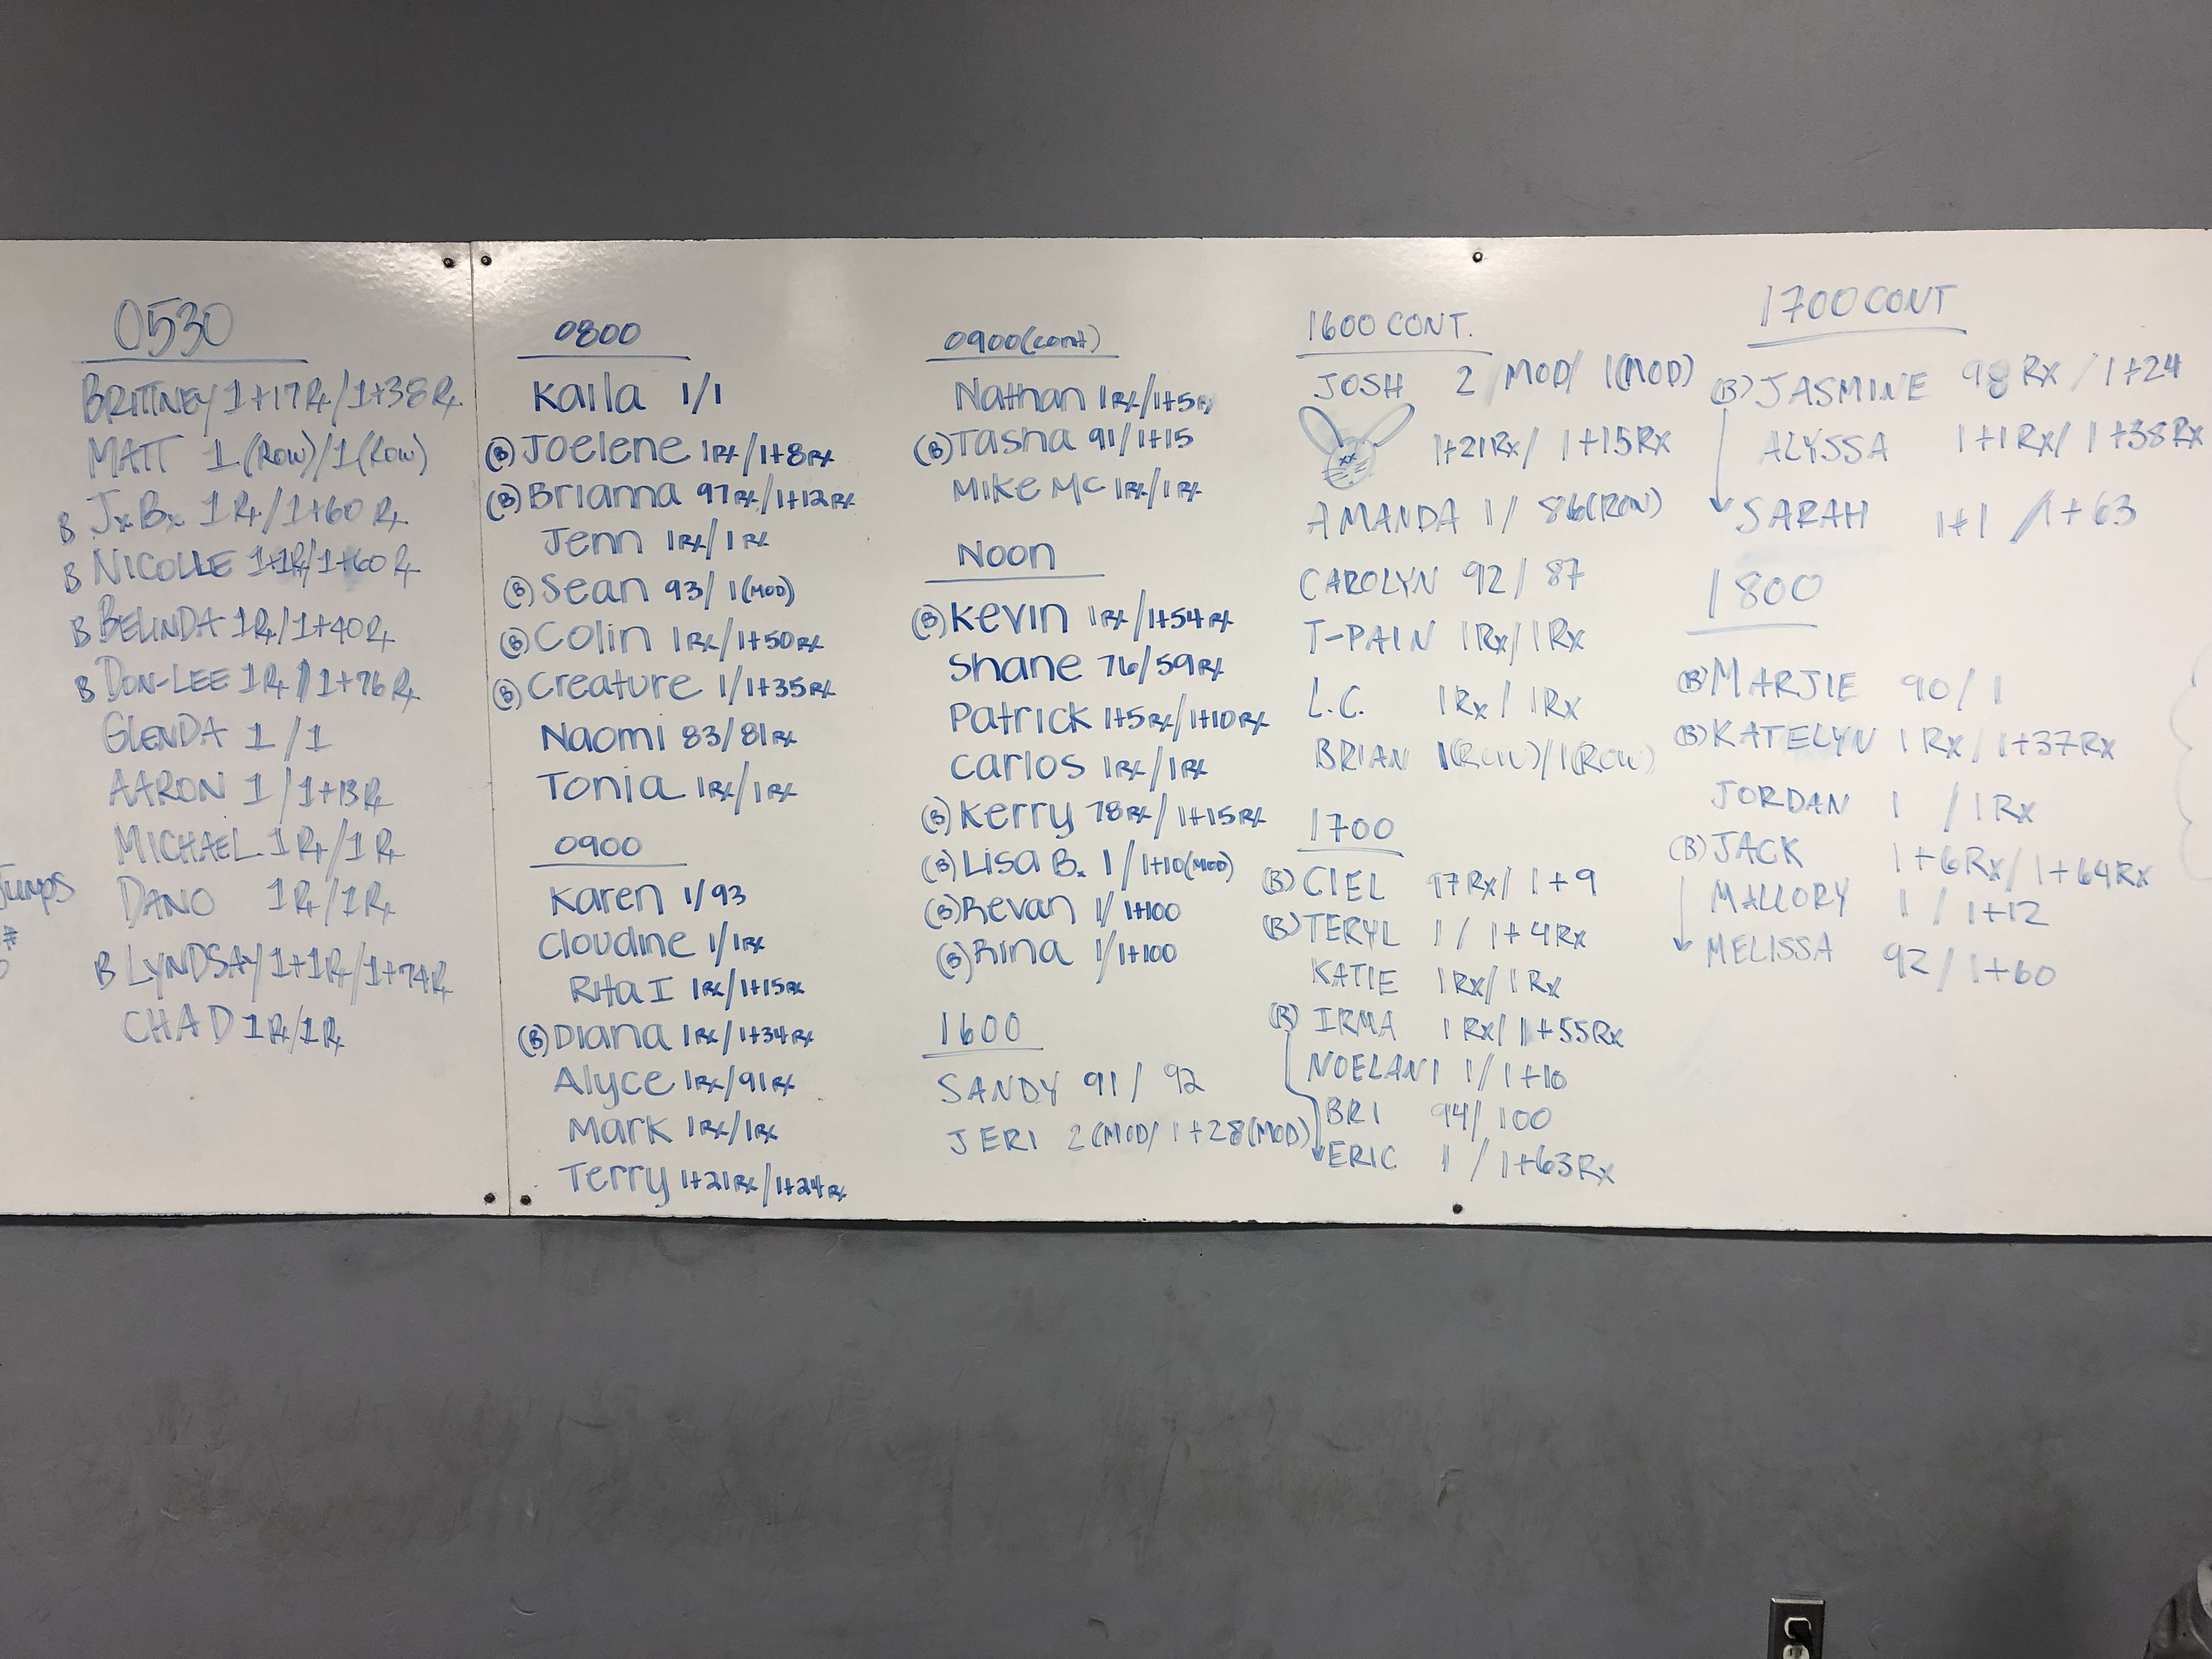 0530
BRITTNEY 1+17Rx/1+38Rx
MATT 1 (Row)/1(Row)
B JxBx 1Rx/1+60Rx
B NICOLLE 1+1Rx/1+60Rx
B BELINDA 1Rx/1+40Rx
B DON-LEE 1Rx/1+76Rx
GLENDA 1/1
AARON 1/1+13Rx
MICHAEL 1Rx/1Rx
DANO 1Rx/1Rx
B LYNDSAY 1+1Rx/1+74Rx
CHAD 1Rx/1Rx
Jumps
#
0800
Kaila 1/1
(B) Joelene 1Rx/1+8Rx
(B) Brianna 97Rx/1+12Rx
Jenn 1Rx/1Rx
(B) Sean 93/1(MOD)
(B) Colin 1Rx/1+50Rx
(B) Creature 1/1+35Rx
Naomi 83/81Rx
Tonia 1Rx/1Rx
0900
Karen 1/93
Cloudine 1/1Rx
Rita I 1Rx/1+15Rx
(B) Diana 1Rx/1+34Rx
Alyce 1Rx/91Rx
Mark 1Rx/1Rx
Terry 1+21Rx/1+24Rx
0900(cont)
Nathan 1Rx/1+5Rx
(B) Tasha 91/1+15
Mike Mc 1Rx/1Rx
Noon
(B) Kevin 1Rx/1+54Rx
Shane 76/59Rx
Patrick 1+5Rx/1+10Rx
Carlos 1Rx/1Rx
(B) Kerry 78Rx/1+15Rx
(B) Lisa B. 1/1+10(MOD)
(B) Revan 1/1+100
(B) Rina 1/1+100
1600
SANDY 91/92
JERI 2(MOD/1+28(MOD)
1600 CONT.
JOSH 2 MOD/1(MOD)
1+21Rx/1+15Rx
AMANDA 1/86(ROW)
CAROLYN 92/87
T-PAIN 1Rx/1Rx
L.C. 1Rx/1Rx
BRIAN 1(ROW)/1(ROW)
1700
(B) CIEL 97Rx/1+9
(B) TERYL 1/1+4Rx
KATIE 1Rx/1Rx
(B) IRMA 1Rx/1+55Rx
NOELANI 1/1+10
BRI 94/100
ERIC 1/1+63Rx
1700 CONT
(B) JASMINE 98Rx/1+24
ALYSSA 1+1Rx/1+38Rx
SARAH 1+1/1+63
1800
(B) MARJIE 90/1
(B) KATELYN 1Rx/1+37Rx
JORDAN 1/1Rx
(B) JACK 1+6Rx/1+64Rx
MALLORY 1/1+12
MELISSA 92/1+60